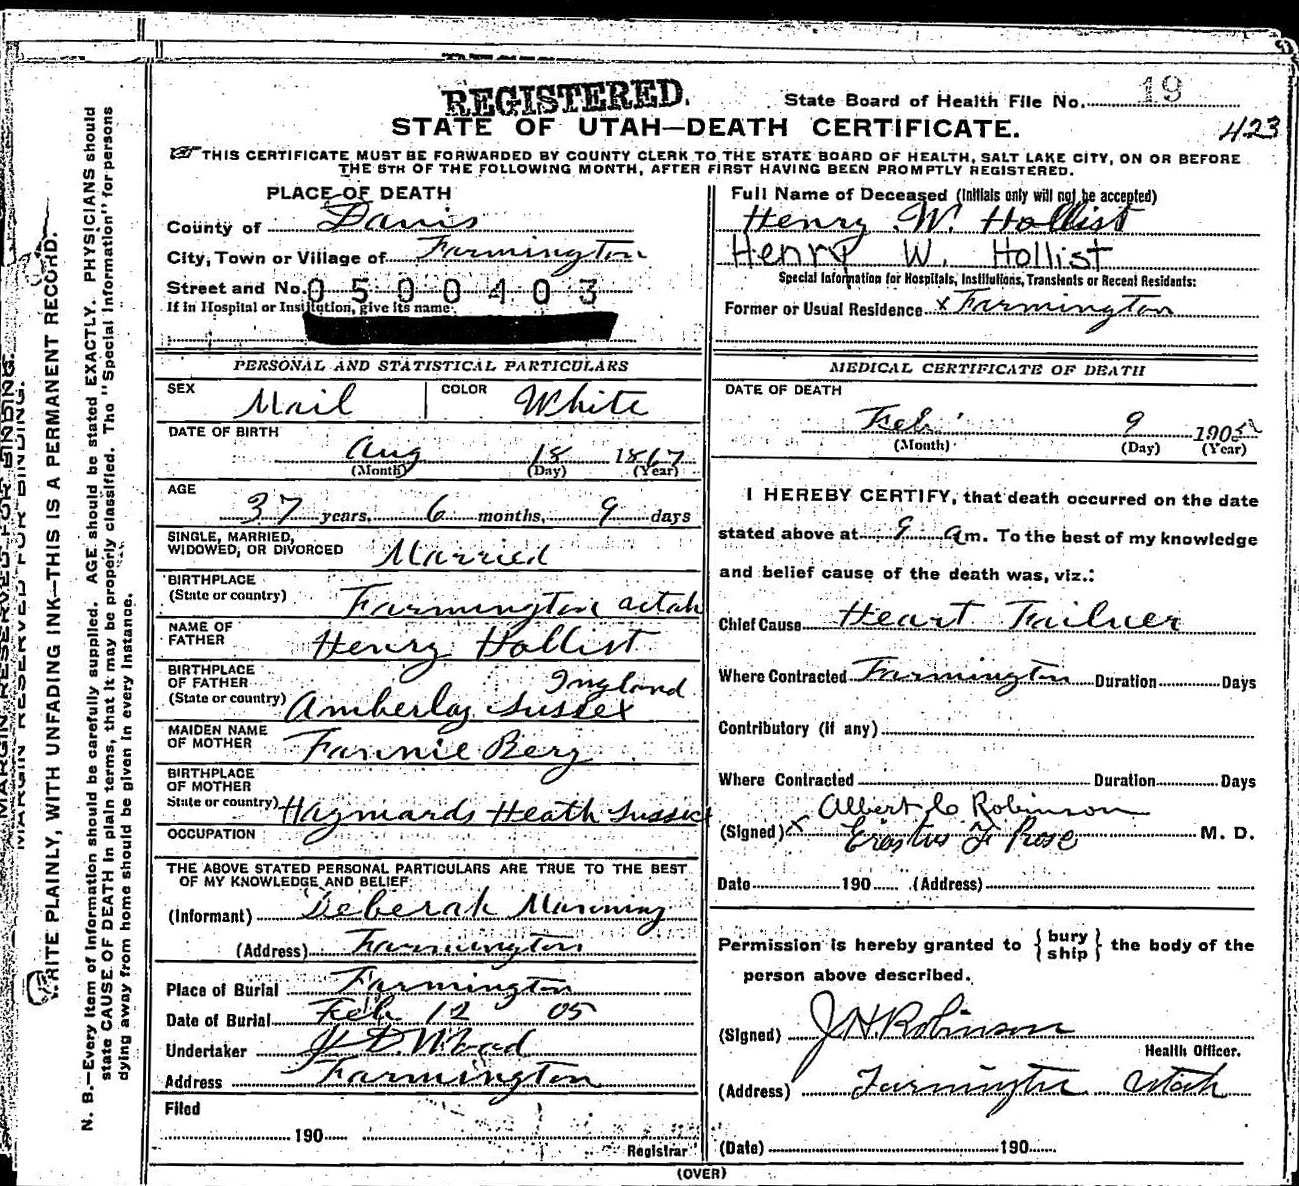 REGISTERED.
State Board of Health File No. 19
STATE OF UTAH—DEATH CERTIFICATE.
423
THIS CERTIFICATE MUST BE FORWARDED BY COUNTY CLERK TO THE STATE BOARD OF HEALTH, SALT LAKE CITY, ON OR BEFORE
THE 5TH OF THE FOLLOWING MONTH, AFTER FIRST HAVING BEEN PROMPTLY REGISTERED.
PLACE OF DEATH
County of Davis
City, Town or Village of Farmington
Street and No. 0500403
If in Hospital or Institution, give its name
Full Name of Deceased (Initials only will not be accepted)
Henry W. Hollist
Henry W. Hollist
Special Information for Hospitals, Institutions, Transients or Recent Residents:
Former or Usual Residence x Farmington
PERSONAL AND STATISTICAL PARTICULARS
SEX Mail COLOR White
DATE OF BIRTH
Aug 18 1867
(Month) (Day) (Year)
AGE
37 years, 6 months, 9 days
SINGLE, MARRIED,
WIDOWED, OR DIVORCED Married
BIRTHPLACE
(State or country) Farmington utah
NAME OF
FATHER Henry Hollist
BIRTHPLACE
OF FATHER Ingland
(State or country) Amberlay Sussex
MAIDEN NAME
OF MOTHER Fannie Berg
BIRTHPLACE
OF MOTHER
State or country) Haymards Heath Sussex
OCCUPATION
THE ABOVE STATED PERSONAL PARTICULARS ARE TRUE TO THE BEST
OF MY KNOWLEDGE AND BELIEF
(Informant) Deberah Manning
(Address) Farmington
Place of Burial Farmington
Date of Burial Feb 12 05
Undertaker D. Wood
Address Farmington
Filed
190
Registrar
MEDICAL CERTIFICATE OF DEATH
DATE OF DEATH
Feb 9 1905
(Month) (Day) (Year)
I HEREBY CERTIFY, that death occurred on the date
stated above at 9 am. To the best of my knowledge
and belief cause of the death was, viz.:
Chief Cause Heart Failuer
Where Contracted Farmington Duration Days
Contributory (if any)
Where Contracted Duration Days
Albert C Robinson
(Signed) x Erastus F Rose M. D.
Date 190 (Address)
Permission is hereby granted to { bury
ship } the body of the
person above described.
(Signed) J H Robinson
Health Officer.
(Address) Farmington Utah
(Date) 190
(OVER)
MARGIN RESERVED FOR BINDING.
MARGIN RESERVED FOR BINDING.
WRITE PLAINLY, WITH UNFADING INK—THIS IS A PERMANENT RECORD.
N. B.—Every item of information should be carefully supplied. AGE should be stated EXACTLY. PHYSICIANS should
state CAUSE OF DEATH in plain terms, that it may be properly classified. The "Special Information" for persons
dying away from home should be given in every instance.